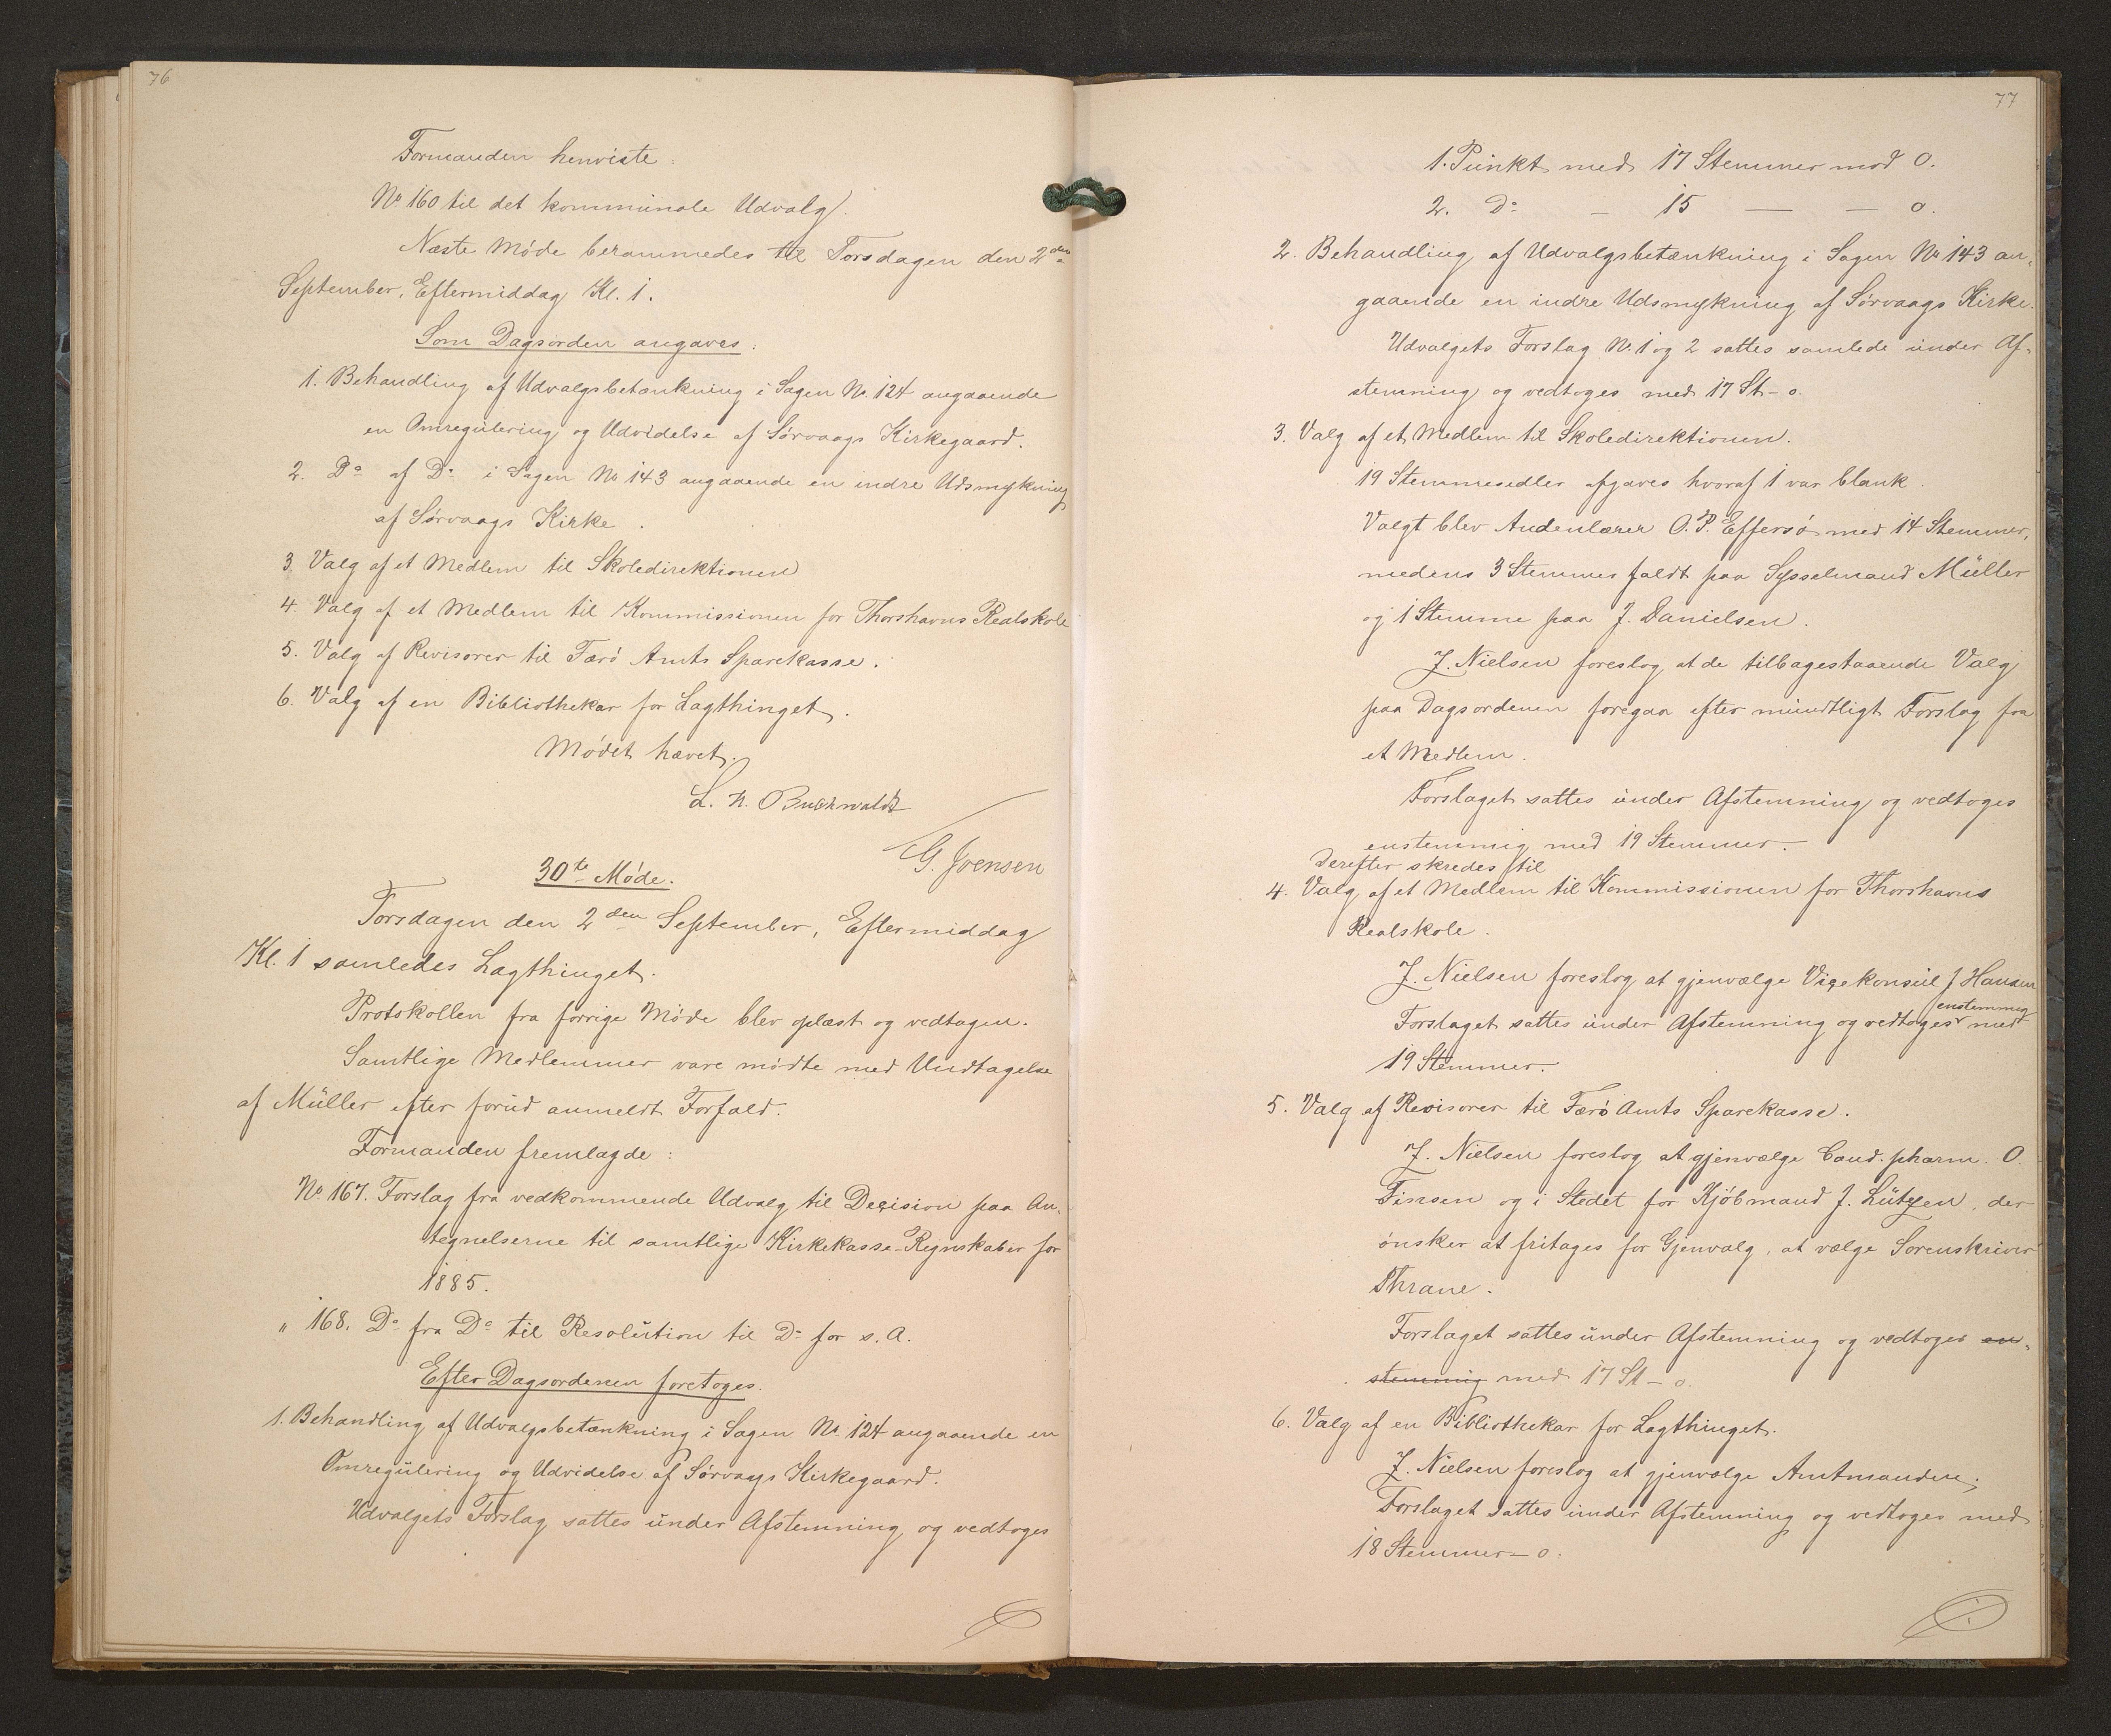 76
Formanden henviste:
No 160 til det kommunale Udvalg.
Næste Møde berammedes til Torsdagen den 2den
September, Eftermiddag Kl. 1.
Som Dagsorden angaves:
1. Behandling af Udvalgsbetænkning i Sagen No. 124 angaaende
en Omregulering og Udvidelse af Sørvaags Kirkegaard.
2. Do af Do i Sagen No 143 angaaende en indre Udsmykning
af Sørvaags Kirke.
3. Valg af et Medlem til Skoledirektionen
4. Valg af et Medlem til Kommissionen for Thorshavns Realskole
5. Valg af Revisorer til Færø Amts Sparekasse.
6. Valg af en Bibliothekar for Lagthinget.
Mødet hævet.
L. H. Buchwaldt
G. Joensen
30te Møde.
Torsdagen den 2den September, Eftermiddag
Kl. 1 samledes Lagthinget.
Protokollen fra forrige Møde blev oplæst og vedtagen.
Samtlige Medlemmer vare mødte med Undtagelse
af Müller efter forud anmeldt Forfald.
Formanden fremlagde:
No 167. Forslag fra vedkommende Udvalg til Decision paa An-
tegnelserne til samtlige Kirkekasse-Regnskaber for
1885.
" 168. Do fra Do til Resolution til Do for s. A.
Efter Dagsordenen foretoges.
1. Behandling af Udvalgsbetænkning i Sagen No. 124 angaaende en
Omregulering og Udvidelse af Sørvaags Kirkegaard.
Udvalgets Forslag sattes under Afstemning og vedtoges
77
1. Punkt med 17 Stemmer mod 0.
2. Do – 15 — – 0.
2. Behandling af Udvalgsbetænkning i Sagen No 143 an-
gaaende en indre Udsmykning af Sørvaags Kirke.
Udvalgets Forslag No. 1 og 2 sattes samlede under Af-
stemning og vedtoges med 17 St – 0.
3. Valg af et Medlem til Skoledirektionen.
19 Stemmesedler afgaves hvoraf 1 var blank.
Valgt blev Andenlærer O. P. Effersø med 14 Stemmer,
medens 3 Stemmer faldt paa Sysselmand Müller
og 1 Stemme paa J. Danielsen.
J. Nielsen foreslog at de tilbagestaaende Valg
paa Dagsordenen foregaa efter mundtligt Forslag fra
et Medlem.
Forslaget sattes under Afstemning og vedtoges
enstemmig med 19 Stemmer.
Derefter skredes til
4. Valg af et Medlem til Kommissionen for Thorshavns
Realskole.
J. Nielsen foreslog at gjenvælge Vicekonsul J Hansen
Forslaget sattes under Afstemning og vedtoges enstemmig med
19 Stemmer.
5. Valg af Revisorer til Færø Amts Sparekasse.
J. Nielsen foreslog at gjenvælge Cand. pharm. O.
Finsen og i Stedet for Kjøbmand J. Lützen, der
ønsker at fritages for Gjenvalg, at vælge Sorenskriver
Thrane.
Forslaget sattes under Afstemning og vedtoges en-
stemmig med 17 St – 0.
6. Valg af en Bibliothekar for Lagthinget.
J. Nielsen foreslog at gjenvælge Amtmanden;
Forslaget sattes under Afstemning og vedtoges med
18 Stemmer – 0.